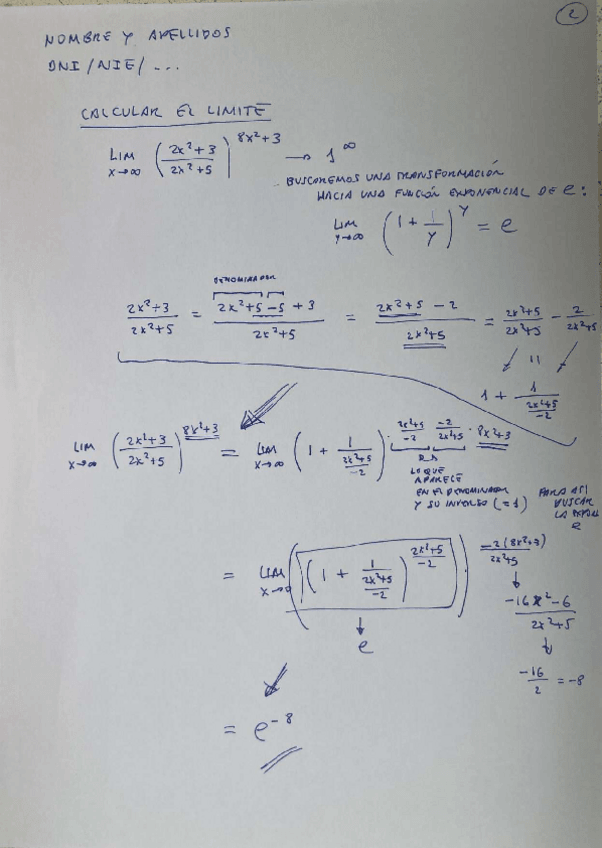 2
NOMBRE Y APELLIDOS
DNI/NIE/...
CALCULAR EL LIMITE
LIM x→∞ ((2x²+3)/(2x²+5))^(8x²+3) → 1^∞
BUSCAREMOS UNA TRANSFORMACIÓN
HACIA UNA FUNCIÓN EXPONENCIAL DE e:
LIM y→∞ (1 + 1/y)^y = e
DENOMINADOR
(2x²+3)/(2x²+5) = (2x²+5 -5 +3)/(2x²+5) = (2x²+5 -2)/(2x²+5) = (2x²+5)/(2x²+5) - 2/(2x²+5)
1 + 1/((2x²+5)/-2)
LIM x→∞ ((2x²+3)/(2x²+5))^(8x²+3) = LIM x→∞ (1 + 1/((2x²+5)/-2))^((2x²+5)/-2 · -2/(2x²+5) · 8x²+3)
LO QUE
APARECE
EN EL DENOMINADOR
Y SU INVERSO (=1)
PARA ASI
BUSCAR
LA
e
= LIM x→ ((1 + 1/((2x²+5)/-2))^((2x²+5)/-2))^(-2(8x²+3)/(2x²+5))
(-16x²-6)/(2x²+5)
e
-16/2 = -8
= e^-8